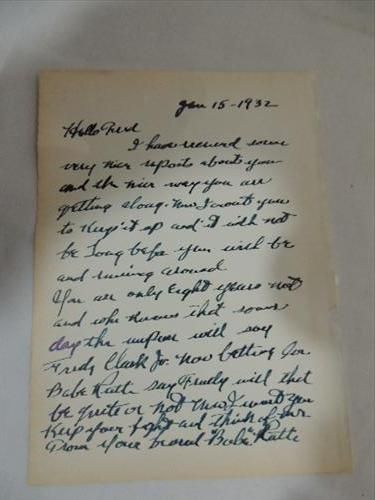 Jan 15-1932
Hello Fred
I have received some
very nice reports about you
and the nice way you are
getting along. Now I want you
to keep it up and it will not
be long before you will be
and running around.
You are only Eight years not
and who knows that some
day the umpire will say
Fredy Clark Jr. now betting for
Babe Ruth say Fredy will that
be quite or not Now I want you
Keep your fight and think of our
From your friend "Babe" Ruth